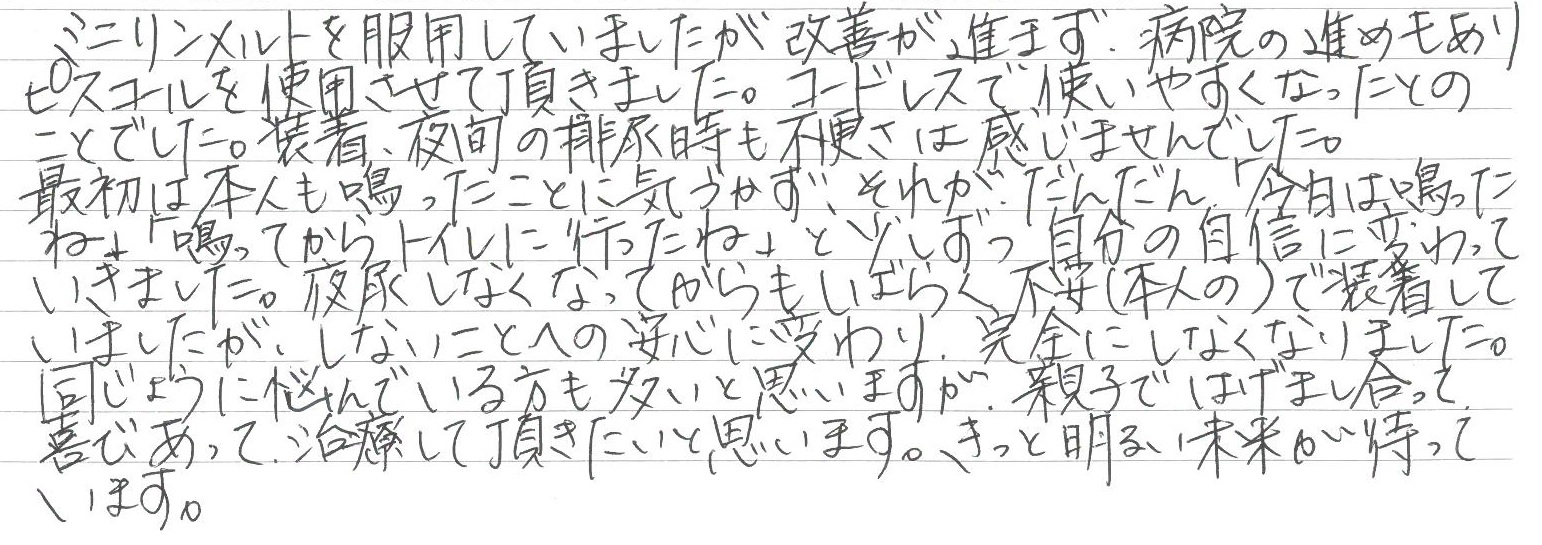 ミニリンメルトを服用していましたが改善が進まず、病院の進めもあり
ピスコールを使用させて頂きました。コードレスで使いやすくなったとの
ことでした。装着、夜間の排尿時も不便さは感じませんでした。
最初は本人も鳴ったことに気づかず、それが、だんだん、「今日は鳴った
ね」「鳴ってからトイレに行ったね」と少しずつ自分の自信に変わって
いきました。夜尿しなくなってからもしばらく不安(本人の)で装着して
いましたが、しないことへの安心に変わり、完全にしなくなりました。
同じように悩んでいる方も多いと思いますが、親子ではげまし合って、
喜びあって、治療して頂きたいと思います。きっと明るい未来が待って
います。